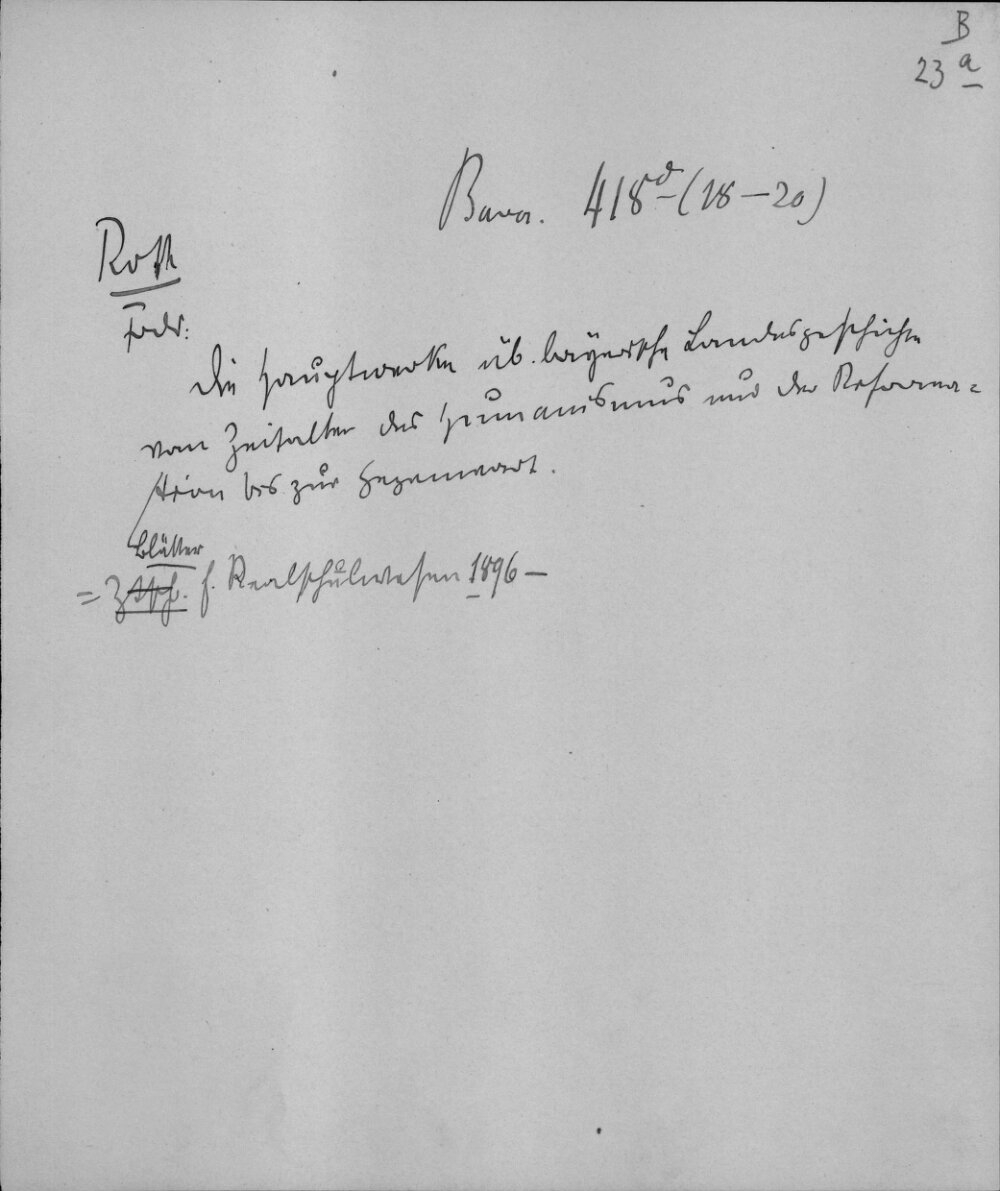 B
23 a
Bavar. 418d (18-20)
Roth
Fedr:
Die Hauptwerke üb. bayerische Landesgeschichte
vom Zeitalter des Humanismus und der Reforma=
tion bis zur Gegenwart.
Blätter
= Ztsch. f. Realschulwesen 1896 –